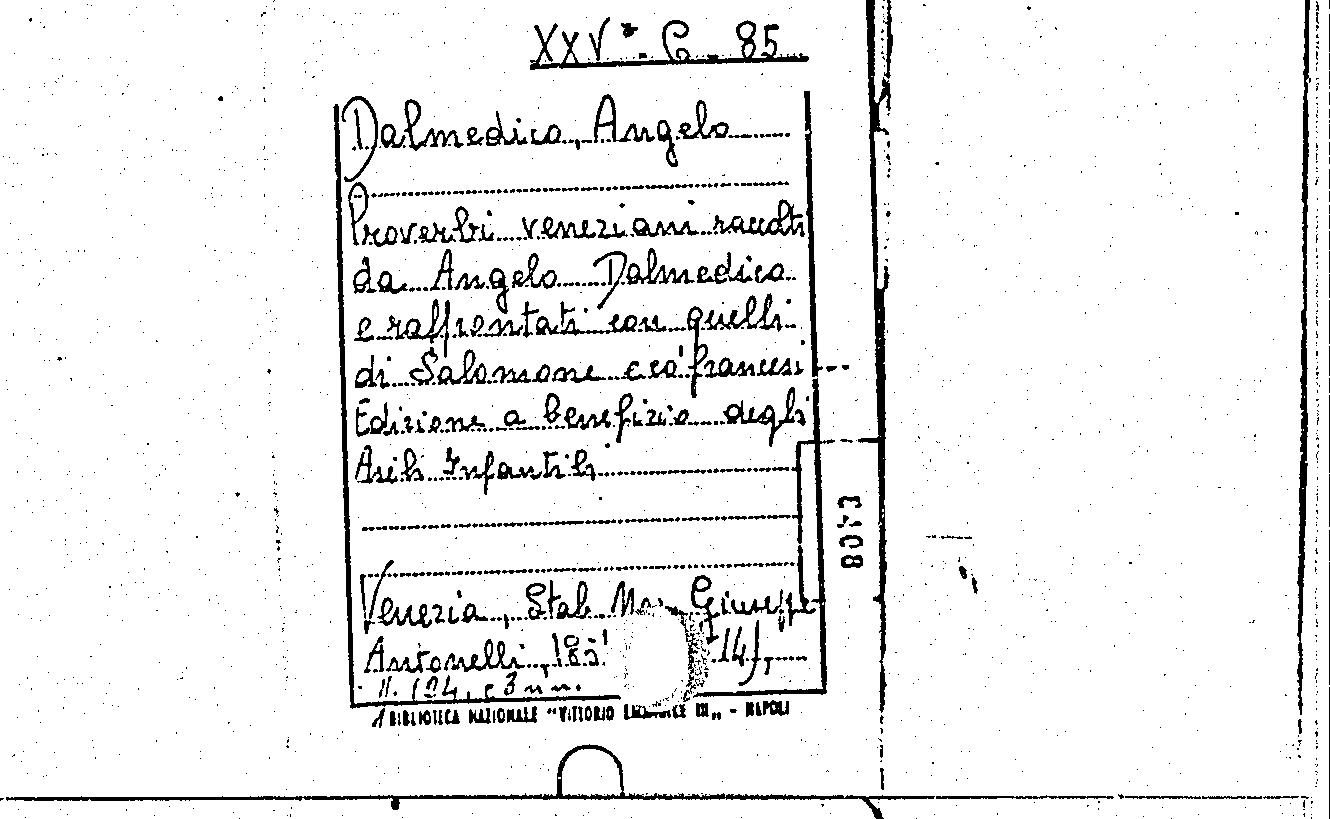 XXVª. C. 85
Dalmedico, Angelo
Proverbi veneziani raccolti
da Angelo Dalmedico
e raffrontati con quelli
di Salomone e co' francesi...
Edizione a benefizio degli
Asili Infantili
Venezia, Stab. Giuseppe
Antonelli,
BIBLIOTECA NAZIONALE "VITTORIO EMANUELE III" - NAPOLI